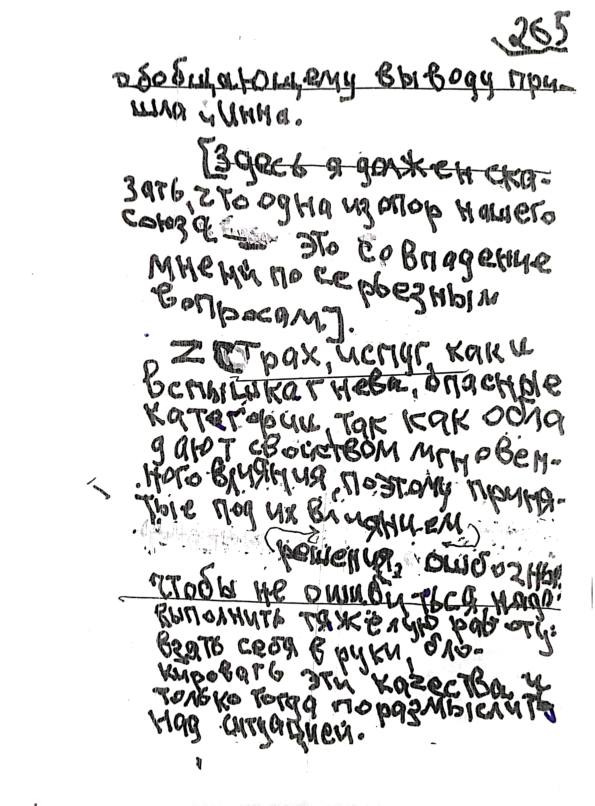 265
обобщающему выводу при-
шла и Инна.
[Здесь я должен ска-
зать, что одна из опор нашего
союза это совпадение
мнений по серьезным
вопросам].
Z Страх, испуг, как и
вспышка гнева, опасные
категории, так как обла
дают свойством мгновен-
ного влияния, поэтому приня-
тые под их влиянием
решения, ошибочны
Чтобы не ошибиться, надо
выполнить тяжёлую работу:
взять себя в руки, бло-
кировать эти качества и
только тогда поразмыслить
над ситуацией.